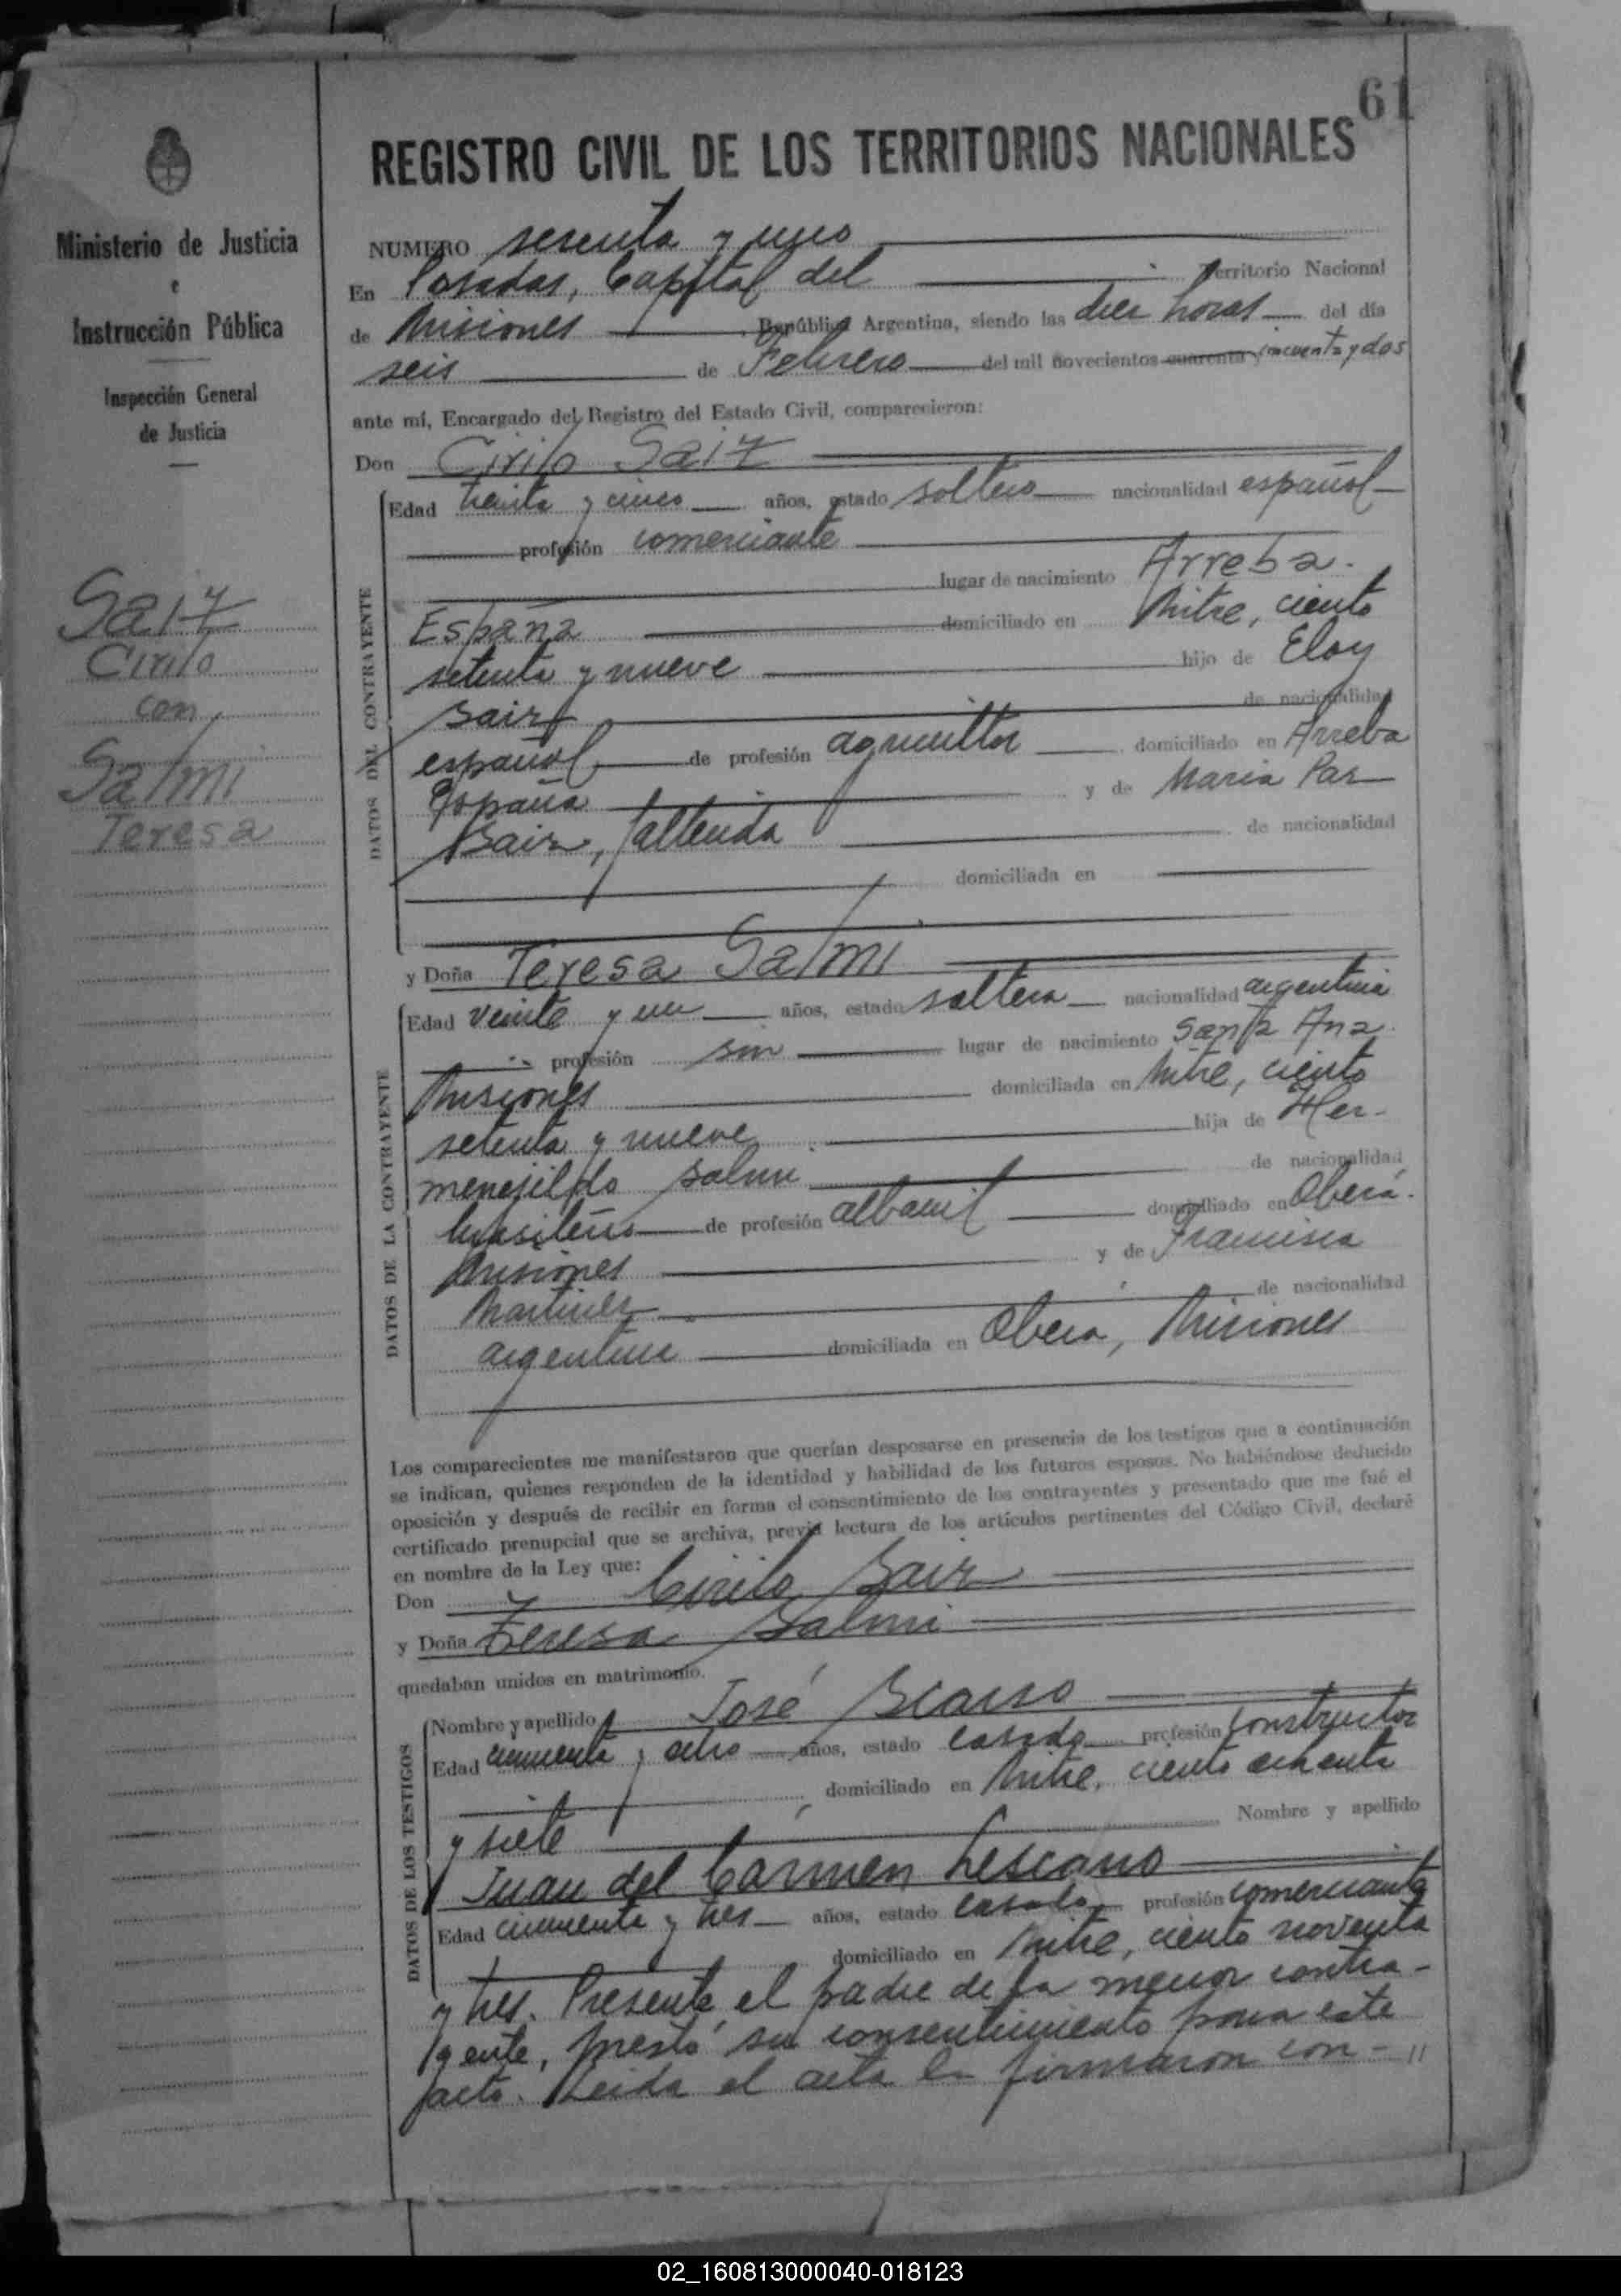 61
REGISTRO CIVIL DE LOS TERRITORIOS NACIONALES
Ministerio de Justicia
e
Instrucción Pública
Inspección General
de Justicia
Saiz
Cirilo
con
Salmi
Teresa
NUMERO sesenta y uno
En Posadas, Capital del Territorio Nacional
de Misiones República Argentina, siendo las diez horas del día
seis de Febrero del mil novecientos cuarenta y cincuenta y dos
ante mí, Encargado del Registro del Estado Civil, comparecieron:
Don Cirilo Saiz
DATOS DEL CONTRAYENTE
Edad treinta y cinco años, estado soltero nacionalidad español
profesión comerciante
lugar de nacimiento Arreba.
España domiciliado en Mitre, ciento
setenta y nueve hijo de Eloy
Saiz de nacionalidad
español de profesión agricultor domiciliado en Arreba
España y de Maria Paz
Saiz, fallecida de nacionalidad
domiciliada en
y Doña Teresa Salmi
DATOS DE LA CONTRAYENTE
Edad veinte y un años, estado soltera nacionalidad argentina
profesión sin lugar de nacimiento Santa Ana
Misiones domiciliada en Mitre, ciento
setenta y nueve hija de Her-
menejildo Salmi de nacionalidad
brasileño de profesión albañil domiciliado en Oberá.
Misiones y de Francisca
Martinez de nacionalidad
argentina domiciliada en Oberá, Misiones
Los comparecientes me manifestaron que querían desposarse en presencia de los testigos que a continuación
se indican, quienes responden de la identidad y habilidad de los futuros esposos. No habiéndose deducido
oposición y después de recibir en forma el consentimiento de los contrayentes y presentado que me fué el
certificado prenupcial que se archiva, previa lectura de los artículos pertinentes del Código Civil, declaré
en nombre de la Ley que:
Don Cirilo Saiz
y Doña Teresa Salmi
quedaban unidos en matrimonio.
DATOS DE LOS TESTIGOS
Nombre y apellido José
Edad cincuenta y ocho años, estado casado profesión constructor
domiciliado en Mitre, ciento
y siete Nombre y apellido
Juan del Carmen Lescano
Edad cincuenta y tres años, estado casado profesión comerciante
domiciliado en Mitre, ciento noventa
y tres. Presente el padre de la menor contra-
yente, prestó su consentimiento para este
acto. Leida el acta la firmaron con - "
02_160813000040-018123